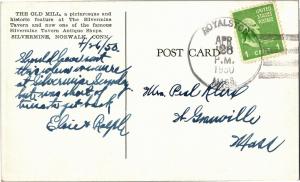 THE OLD MILL, a picturesque and
historic feature at The Silvermine
Tavern and now one of the famous
Silvermine Tavern Antique Shops.
SILVERMINE, NORWALK, CONN.
4/26/50
Should have sent
this when we were
at Silvermine Sunday
but was short of
time to get back
Elsie & Ralph
POST CARD
ROYALSTON
APR
28
P.M.
1950
MASS.
1 CENT 1
Mrs. Paul
W Granville
Mass